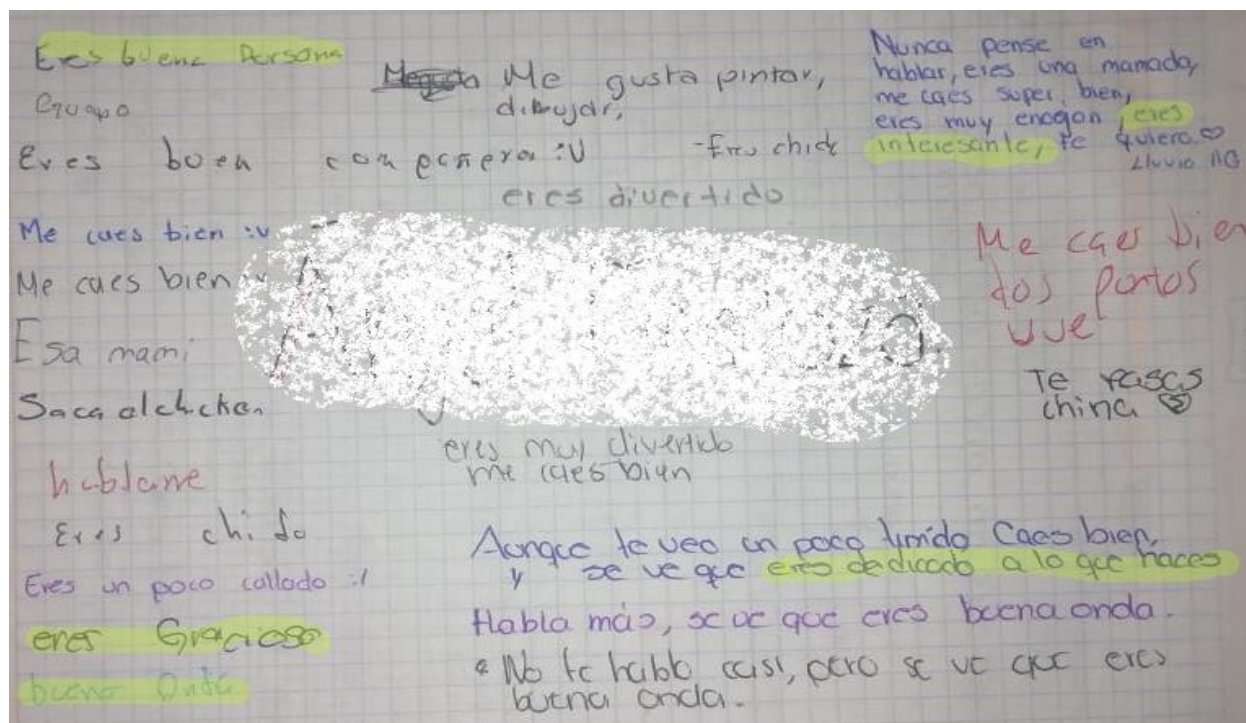 Eres buena Persona
Eguapo
Eres buen compeñera :U
Me caes bien :v
Me caes bien
Esa mami
Saca elchcken
hablame
Eres chido
Eres un poco callado :/
eres Gracioso
buena Onda
Me gusta pintar,
dibujar,
-Eres chido
eres divertido
eres muy divertido
me caes bien
Nunca pense en
hablar, eres una mamada,
me caes super bien,
eres muy enogon, eres
interesante, te quiero ♡
Lluvia
Me caes bien
dos puntos
uve
Te pasas
china ♡
Aunque te veo un poco timido Caes bien,
y se ve que eres dedicado a lo que haces
Habla más, se ve que eres buena onda.
* No te hablo casi, pero se ve que eres
buena onda.